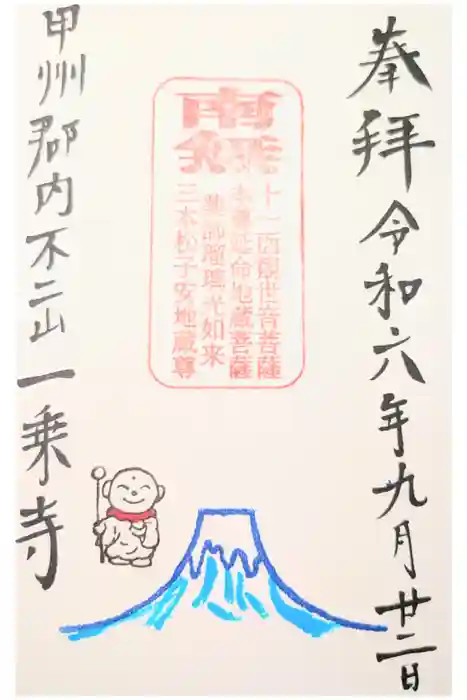 奉拝令和六年九月廿二日
南無
十一面観世音菩薩
本尊延命地蔵菩薩
薬師瑠璃光如来
三本松子安地蔵尊
甲州郡内不二山一乗寺